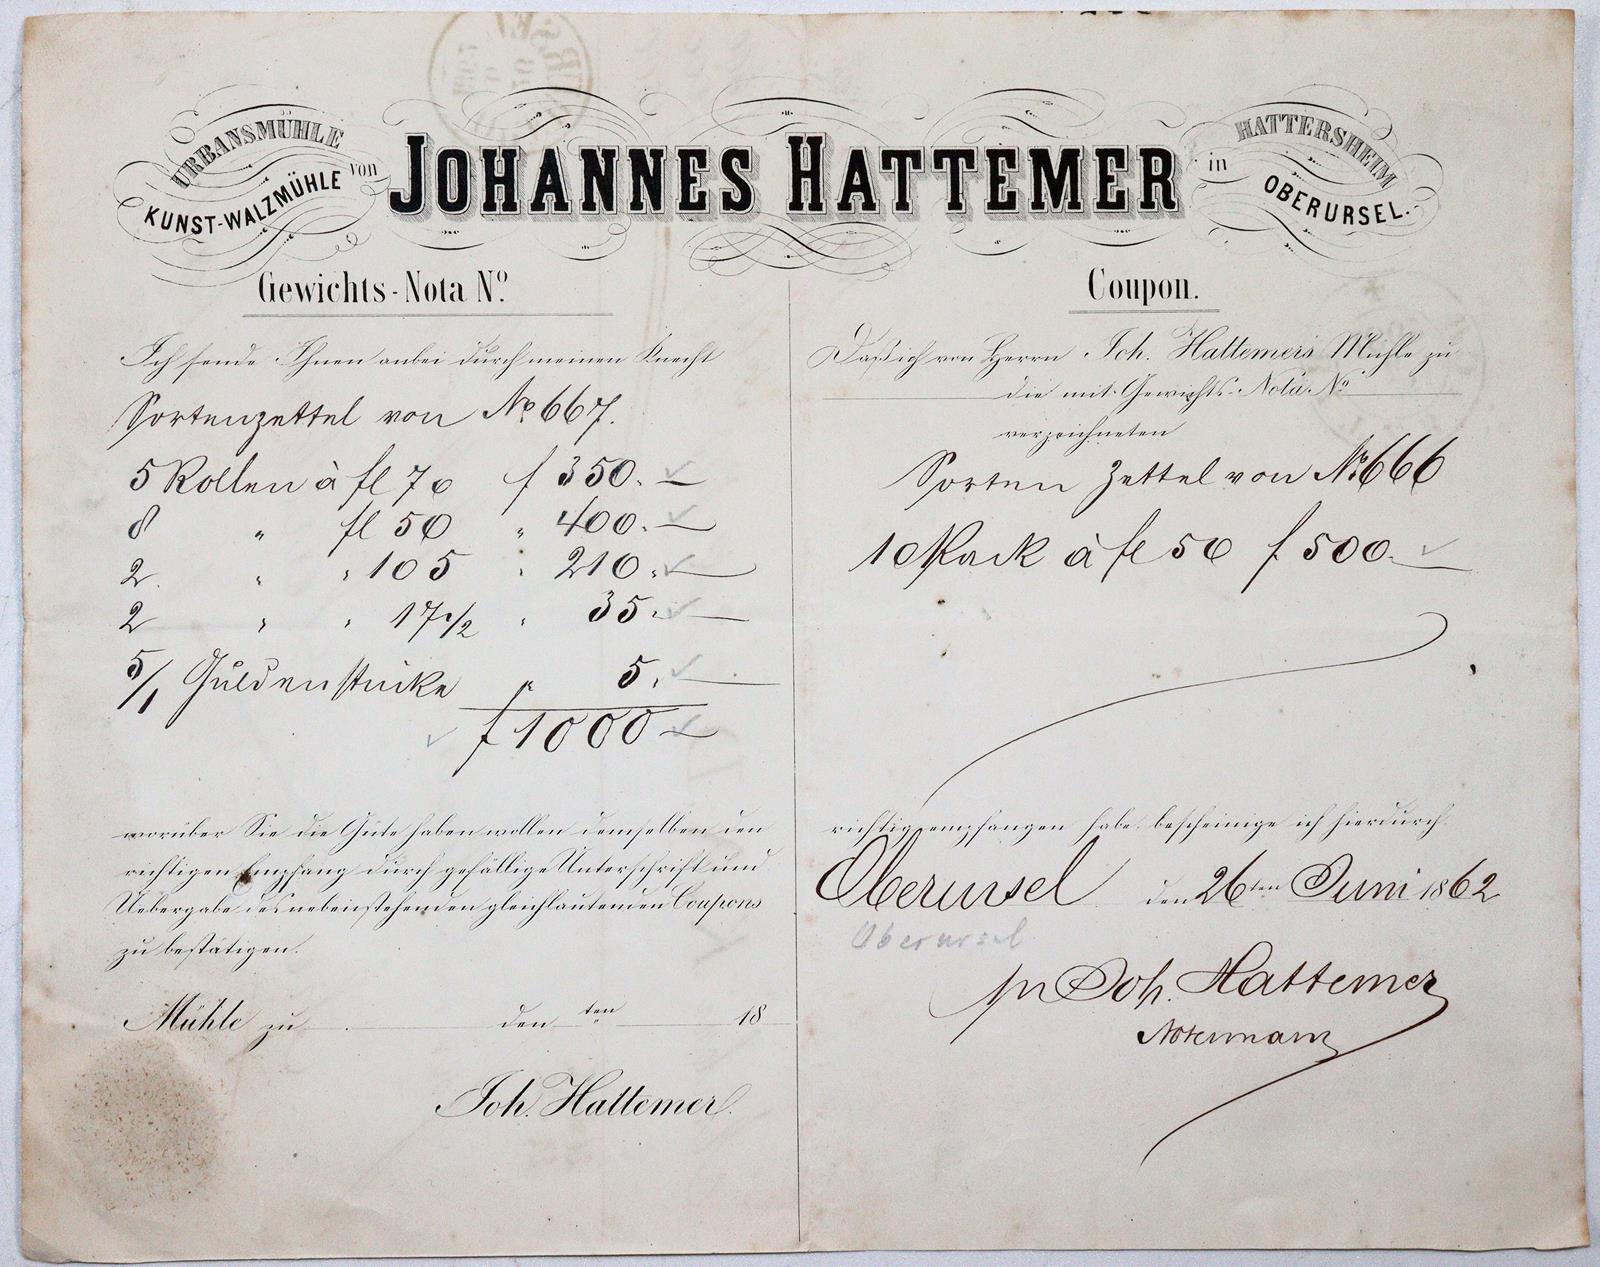 URBANSMÜHLE
KUNST-WALZMÜHLE
von
JOHANNES HATTEMER
in
HATTERSHEIM
OBERURSEL.
Gewichts-Nota No.
Ich sende Ihnen anbei durch meinen Knecht
Sortenzettel von No 667.
5 Rollen à fl 70 f 350.—
8 " fl 50 " 400.—
2 " " 105 " 210.—
2 " " 17 1/2 " 35.—
5/1 Guldenstücke " 5.—
f 1000—
worüber Sie die Güte haben wollen demselben den
richtigen Empfang durch gefällige Unterschrift und
Uebergabe des nebenstehenden gleichlautenden Coupons
zu bestätigen.
Mühle zu den ten 18
Joh. Hattemer.
Coupon.
Daß ich von Herrn Joh. Hattemers Mühle zu
die mit Gewichts-Nota No
verzeichneten
Sorten Zettel von No 666
10 Pack à fl 50 f 500.—
richtig empfangen habe, bescheinige ich hierdurch.
Oberursel den 26ten Juni 1862
Oberursel
pr Joh. Hattemer